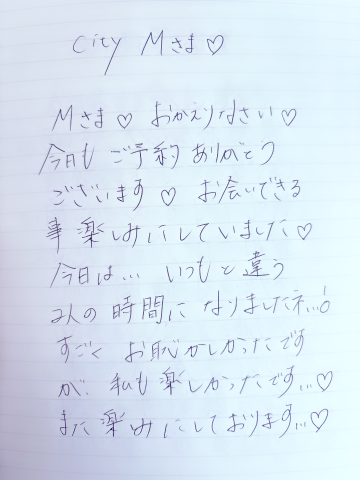 City Mさま♡
Mさま♡ おかえりなさい♡
今日も ご予約 ありがとう
ございます♡ お会いできる
事 楽しみにしていました♡
今日は… いつもと違う
2人の時間に なりましたネ…!
すごく お恥かしかったです
が、私も楽しかったです…♡
また 楽しみにしております…♡